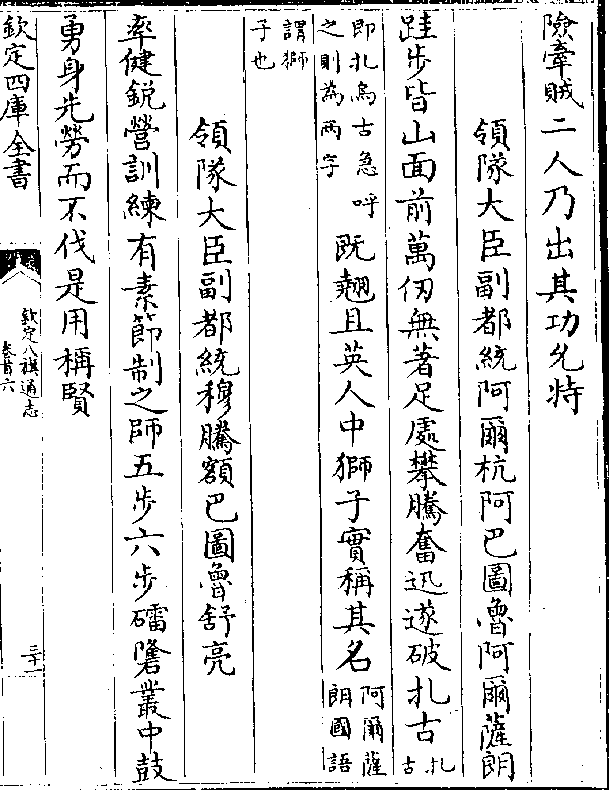 險搴賊二人乃出其功允特
領隊大臣副都統阿爾杭阿巴圖魯阿爾薩朗
跬步皆山面前萬仞無著足處攀騰奮迅遂破扎古扎古
即扎烏古急呼之則為兩字既翹且英人中獅子實稱其名阿爾薩朗國語
謂獅子也
領隊大臣副都統穆騰額巴圖魯舒亮
率健銳營訓練有素節制之師五步六步礌㩙叢中鼓
勇身先勞而不伐是用稱賢
欽定四庫全書
欽定八旗通志
卷首六
三十一